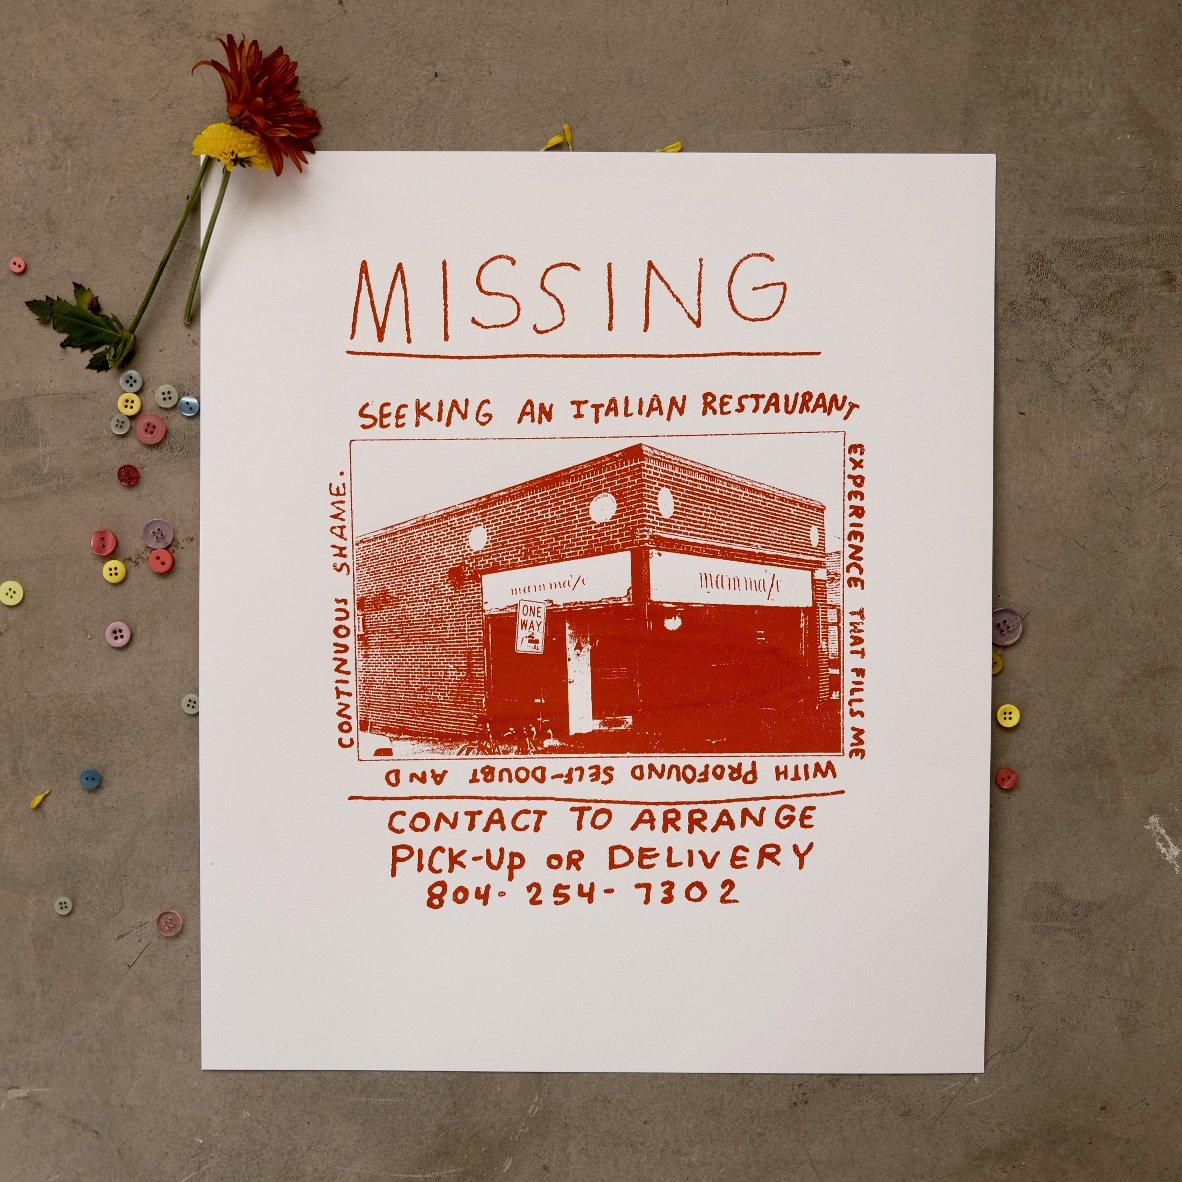 MISSING
SEEKING AN ITALIAN RESTAURANT
EXPERIENCE THAT FILLS ME
WITH PROFOUND SELF-DOUBT AND
CONTINUOUS SHAME.
mamma'zu
mamma'zu
ONE
WAY
CONTACT TO ARRANGE
PICK-UP OR DELIVERY
804-254-7302